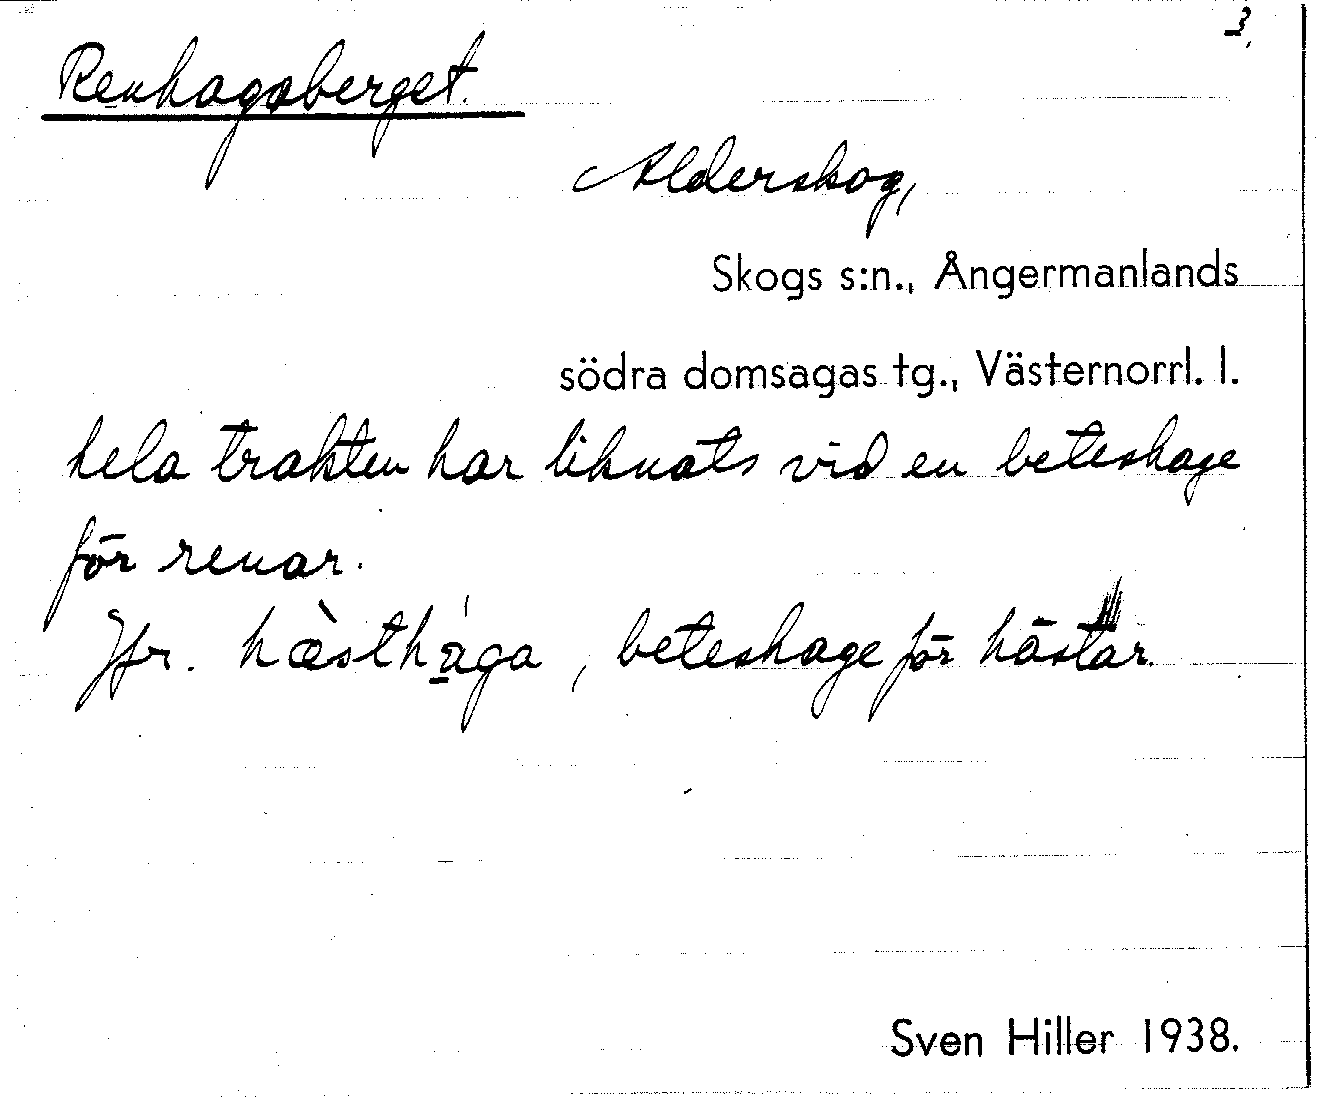 3.
Renhagsberget.
Alderskog,
Skogs s:n., Ångermanlands
södra domsagas tg., Västernorrl. l.
hela trakten har liknats vid en beteshage
för renar.
Jfr. hæ̀sthá̱ga, beteshage för hästar.
Sven Hiller 1938.